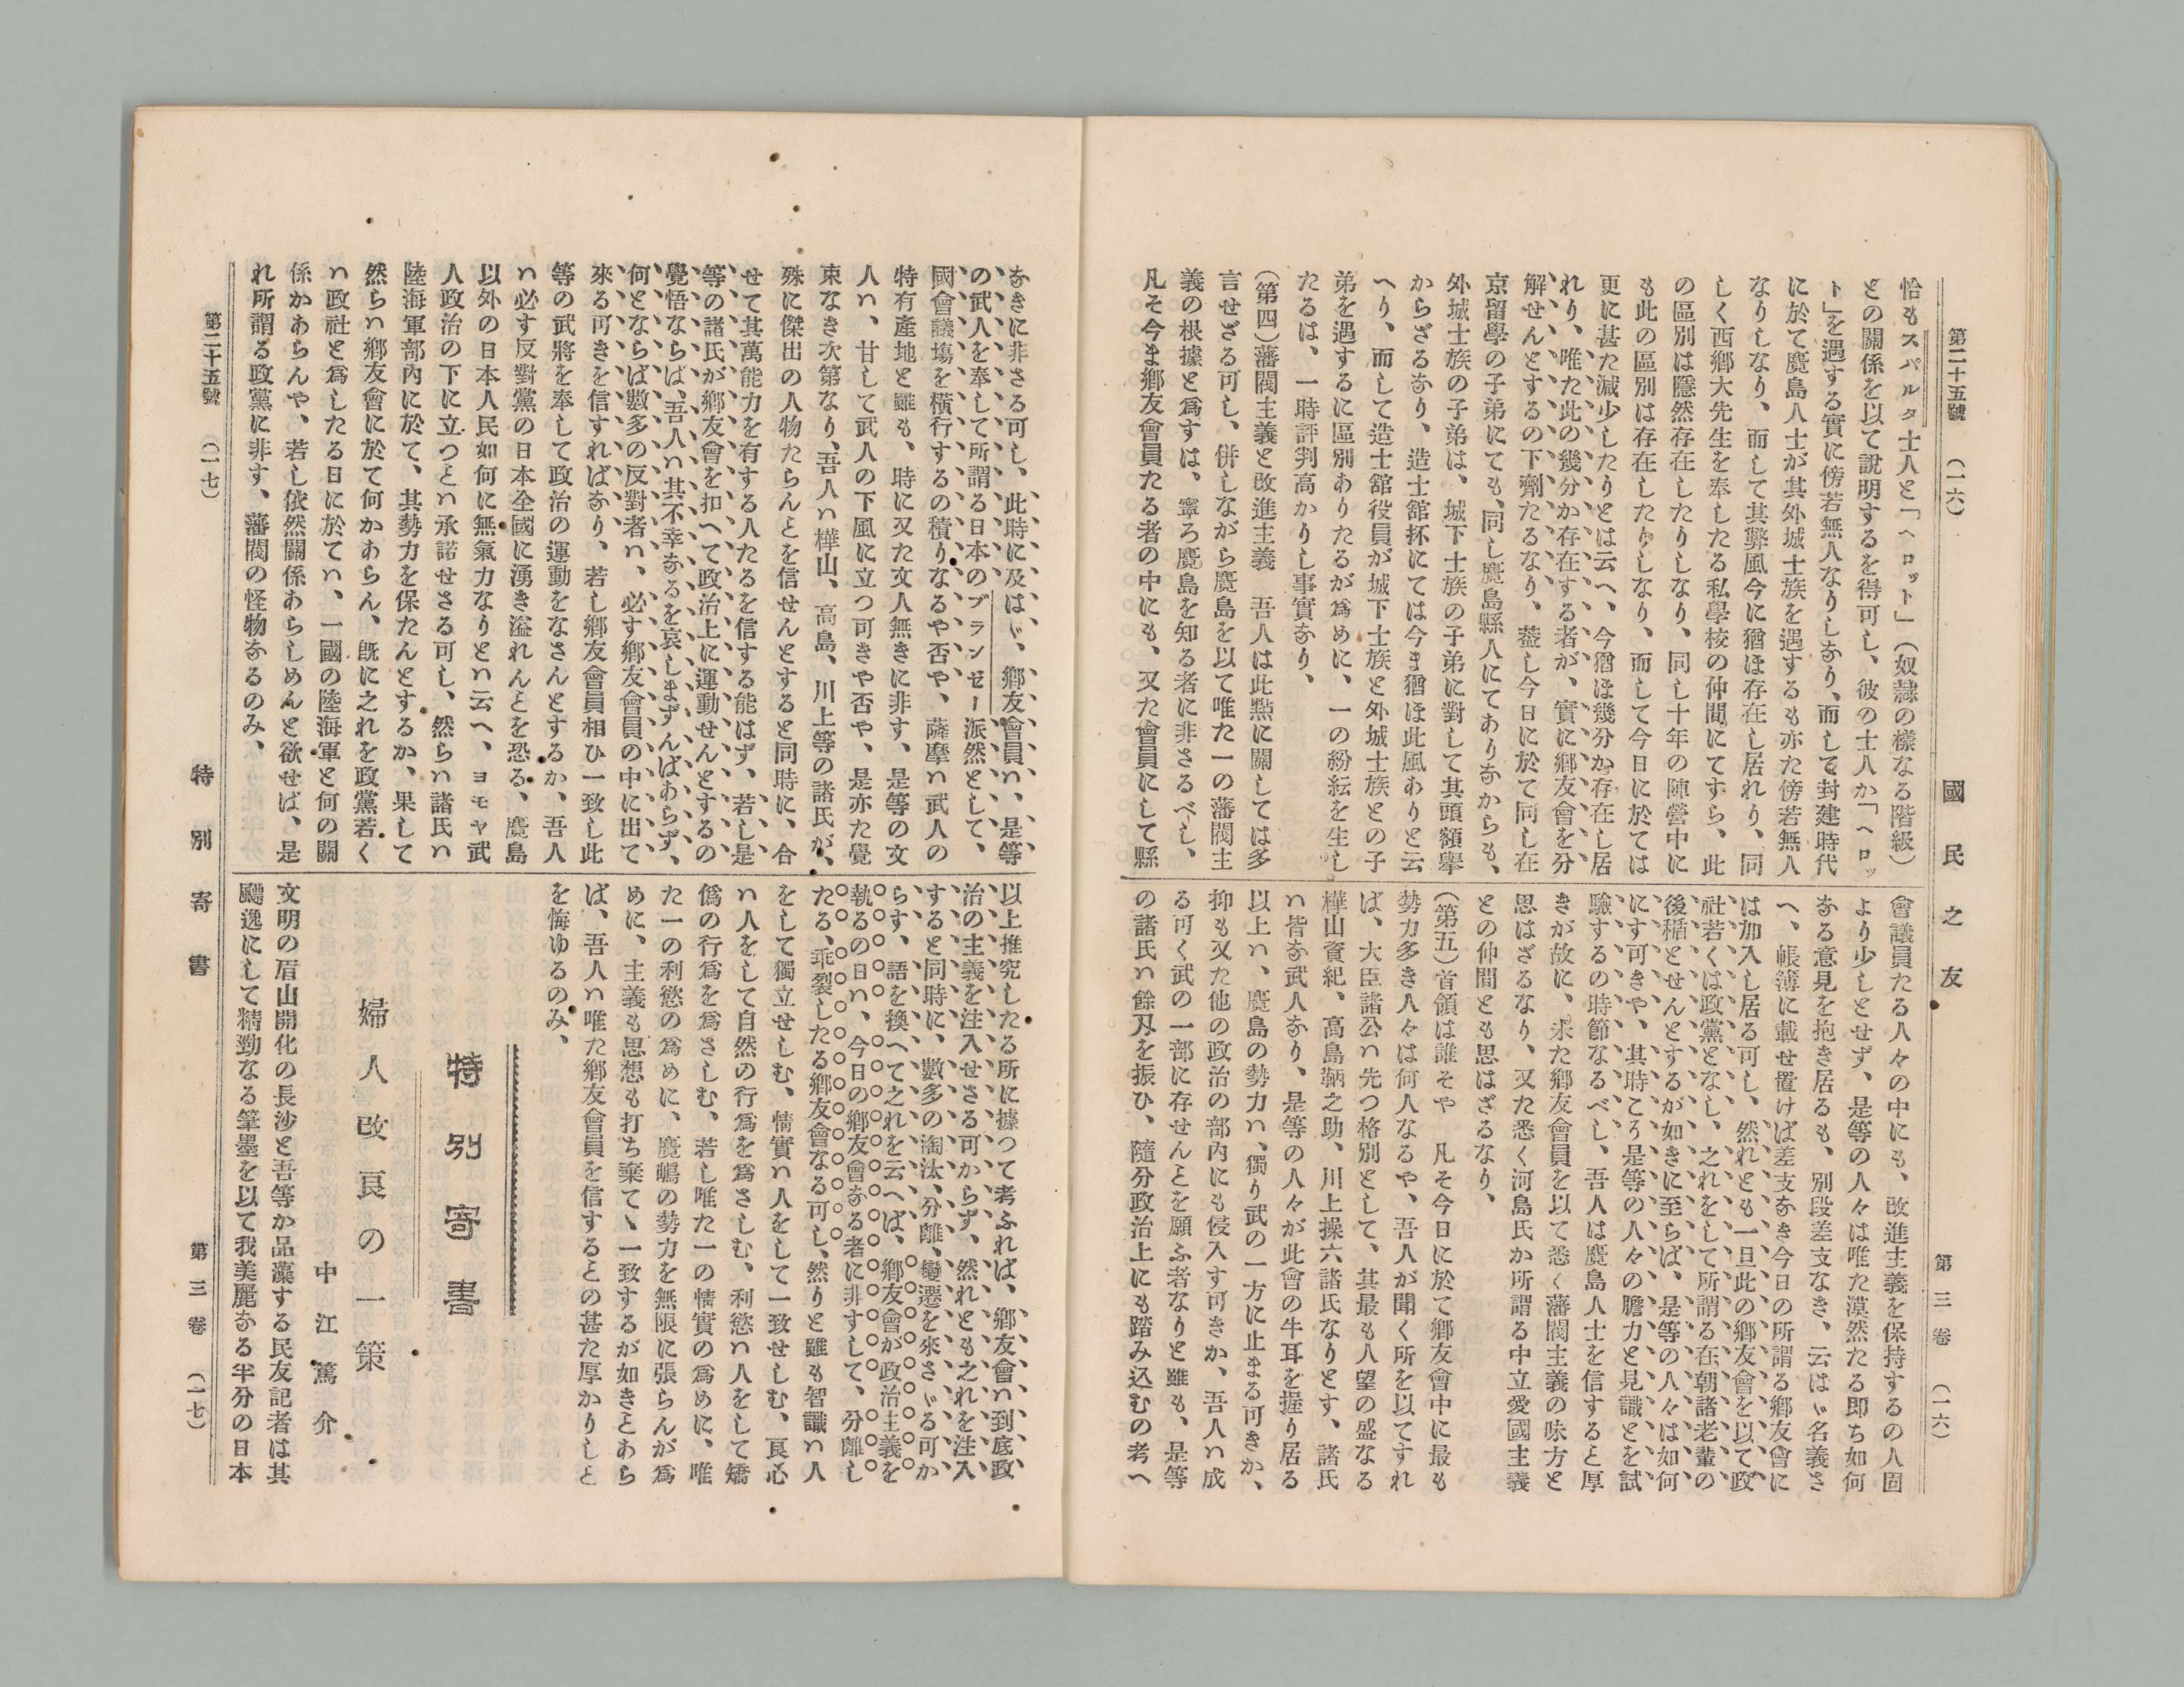 第二十五號 (一六) 國民之友 第三卷 (一六)
恰もスパルタ士人と「ヘロット」(奴隷の樣なる階級)
との關係を以て說明するを得可し、彼の士人か「ヘロッ
ト」を遇する實に傍若無人なりしなり、而して封建時代
に於て麑島人士が其外城士族を遇するも亦た傍若無人
なりしなり、而して其弊風今に猶ほ存在し居れり、同
しく西鄕大先生を奉したる私學校の仲間にてすら、此
の區別は隱然存在したりしなり、同し十年の陣營中に
も此の區別は存在したりしなり、而して今日に於ては
更に甚た減少したりとは云へ、今猶ほ幾分か存在し居
れり、唯た此の幾分か存在する者が、實に鄕友會を分
解せんとするの下劑たるなり、蓋し今日に於て同し在
京留學の子弟にても、同し麑島縣人にてありなからも、
外城士族の子弟は、城下士族の子弟に對して其頭額擧
からざるなり、造士舘抔にては今ま猶ほ此風ありと云
へり、而して造士舘役員が城下士族と外城士族との子
弟を遇するに區別ありたるが爲めに、一の紛紜を生し
たるは、一時評判高かりし事實なり、
(第四)藩閥主義と改進主義 吾人は此點に關しては多
言せざる可し、併しながら麑島を以て唯た一の藩閥主
義の根據と爲すは、寧ろ麑島を知る者に非さるべし、
凡そ今ま鄕友會員たる者の中にも、又た會員にして縣
會議員たる人々の中にも、改進主義を保持するの人固
より少しとせず、是等の人々は唯た漠然たる即ち如何
なる意見を抱き居るも、別段差支なき、云はゞ名義さ
へ、帳簿に載せ置けば差支なき今日の所謂る鄕友會に
は加入し居る可し、然れとも一旦此の鄕友會を以て政
社若くは政黨となし、之れをして所謂る在朝諸老輩の
後楯とせんとするが如きに至らば、是等の人々は如何
にす可きや、其時こう是等の人々の膽力と見識とを試
驗するの時節なるべし、吾人は麑島人士を信すると厚
きが故に、未た鄕友會員を以て悉く藩閥主義の味方と
思はざるなり、又た悉く河島氏か所謂る中立愛國主義
との仲間とも思はざるなり、
(第五)首領は誰そや 凡そ今日に於て鄕友會中に最も
勢力多き人々は何人なるや、吾人が聞く所を以てすれ
ば、大臣諸公ハ先つ格別として、其最も人望の盛なる
樺山資紀、高島鞆之助、川上操六諸氏なりとす、諸氏
ハ皆な武人なり、是等の人々が此會の牛耳を握り居る
以上ハ、麑島の勢力ハ、獨り武の一方に止まる可きか、
抑も又た他の政治の部內にも侵入す可きか、吾人ハ成
る可く武の一部に存せんとを願ふ者なりと雖も、是等
の諸氏ハ餘刄を振ひ、隨分政治上にも踏み込むの考へ
なきに非さる可し、此時に及はゞ、鄕友會員ハ、是等
の武人を奉して所謂る日本のブランゼー派然として、
國會議塲を橫行するの積りなるや否や、薩摩ハ武人の
特有產地と雖も、時に又た文人無きに非す、是等の文
人ハ、甘して武人の下風に立つ可きや否や、是亦た覺
束なき次第なり、吾人ハ樺山、高島、川上等の諸氏が、
殊に傑出の人物たらんとを信せんとすると同時に、合
せて其萬能力を有する人たるを信する能はず、若し是
等の諸氏が鄕友會を扣へて政治上に運動せんとするの
覺悟ならば、吾人ハ其不幸なるを哀しまずんばあらず、
何とならば數多の反對者ハ、必す鄕友會員の中に出て
來る可きを信すればなり、若し鄕友會員相ひ一致し此
等の武將を奉して政治の運動をなさんとするか、吾人
ハ必す反對黨の日本全國に湧き溢れんとを恐る、麑島
以外の日本人民如何に無氣力なりとハ云へ、ヨモヤ武
人政治の下に立つとハ承諾せさる可し、然らハ諸氏ハ
陸海軍部內に於て、其勢力を保たんとするか、果して
然らハ鄕友會に於て何かあらん、旣に之れを政黨若く
ハ政社と爲したる日に於てハ、一國の陸海軍と何の關
係かあらんや、若し依然關係あらしめんと欲せば、是
れ所謂る政黨に非す、藩閥の怪物なるのみ、
以上推究したる所に據つて考ふれば、鄕友會ハ到底政
治の主義を注入せさる可からす、然れとも之れを注入
すると同時に、數多の淘汰、分離、變遷を來さゞる可か
らす、語を換へて之れを云へば、鄕友會が政治主義を
執るの日ハ、今日の鄕友會なる者に非すして、分離し
たる、乖裂したる鄕友會なる可し、然りと雖も智識ハ人
をして獨立せしむ、情實ハ人をして一致せしむ、良心
ハ人をして自然の行爲を爲さしむ、利慾ハ人をして矯
僞の行爲を爲さしむ、若し唯た一の情實の爲めに、唯
た一の利慾の爲めに、麑嶋の勢力を無限に張らんが爲
めに、主義も思想も打ち棄てゝ一致するが如きとあら
ば、吾人ハ唯た鄕友會員を信するとの甚た厚かりしと
を悔ゆるのみ、
特別寄書
婦人改良の一策
中江篤介
文明の眉山開化の長沙と吾等か品藻する民友記者は其
飃逸にして精勁なる筆墨を以て我美麗なる半分の日本
第二十五號 (一七) 特別寄書 第三卷 (一七)